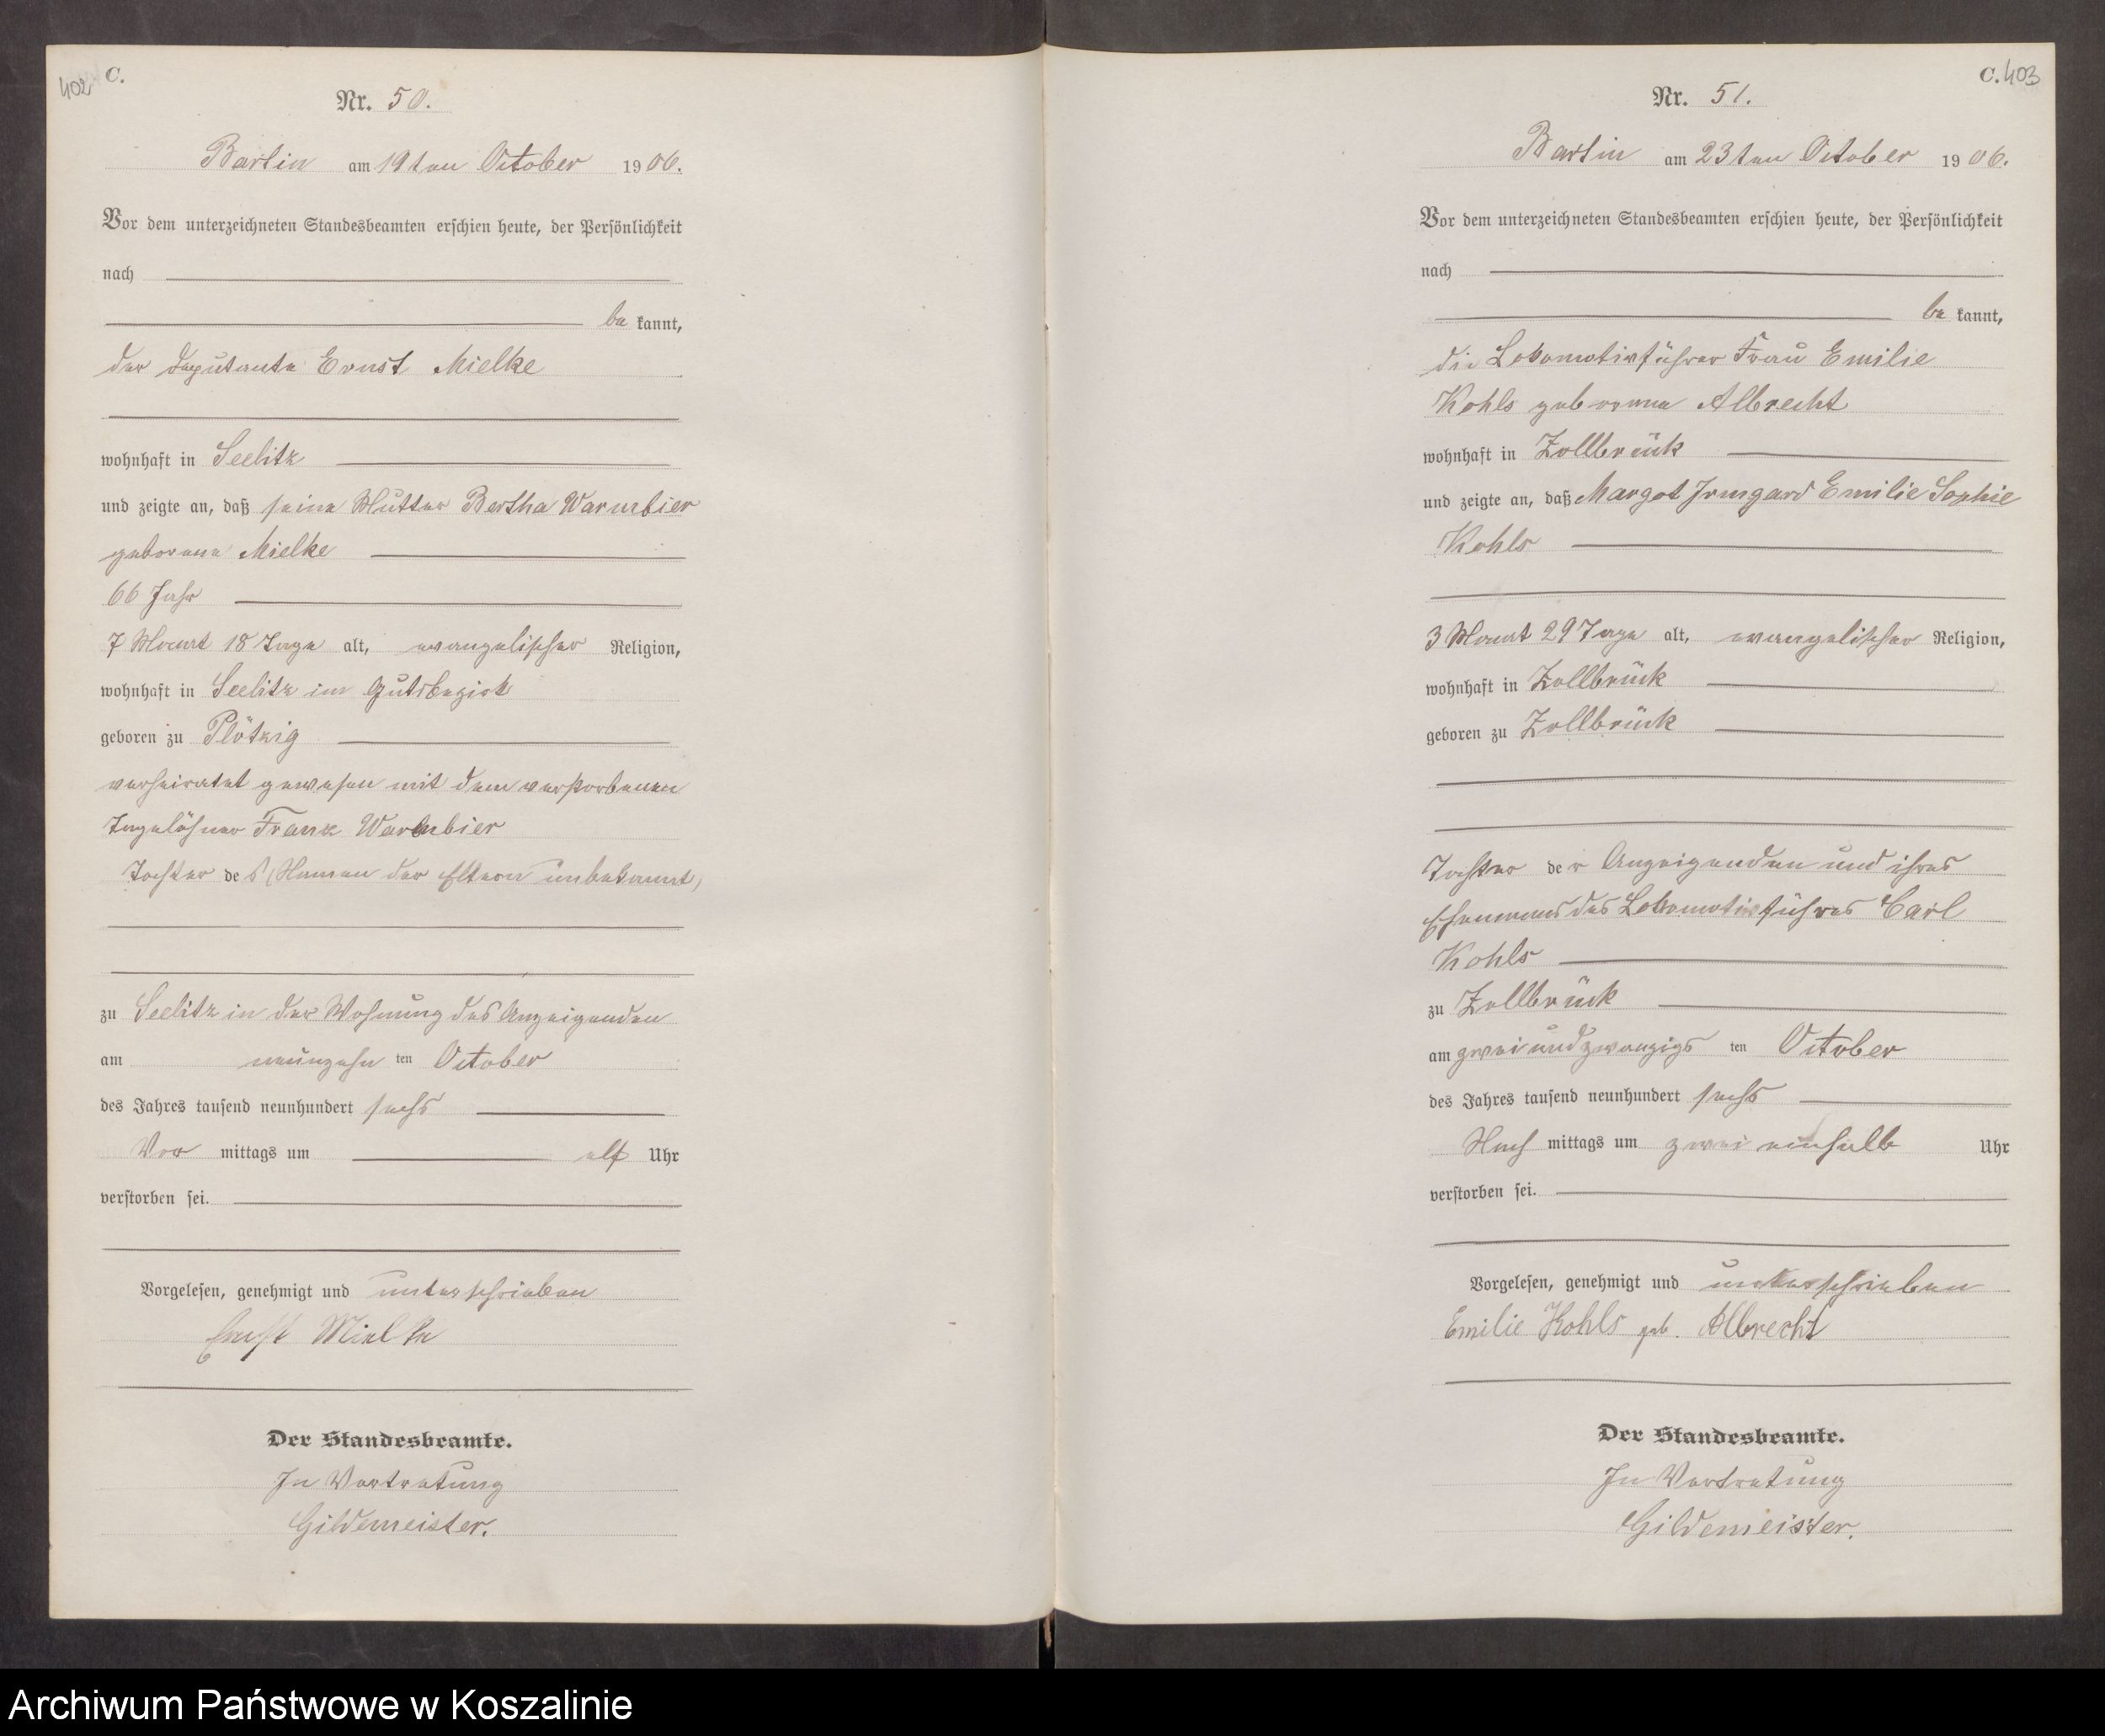 402 C.
Nr. 50.
Bartin am 19ten October 1906.
Vor dem unterzeichneten Standesbeamten erschien heute, der Persönlichkeit
nach
be kannt,
der Deputante Ernst Mielke
wohnhaft in Seelitz
und zeigte an, daß seine Mutter Bertha Warmbier
geborene Mielke
66 Jahr
7 Monat 18 Tage alt, evangelischer Religion,
wohnhaft in Seelitz im Gutsbezirk
geboren zu Plötzig
verheiratet gewesen mit dem verstorbenen
Tagelöhner Franz Warmbier
Tochter des (Namen der Eltern unbekannt)
zu Seelitz in der Wohnung des Anzeigenden
am neunzehn ten October
des Jahres tausend neunhundert sechs
Vor mittags um elf Uhr
verstorben sei.
Vorgelesen, genehmigt und unterschrieben
Ernst Mielke
Der Standesbeamte.
In Vertretung
Gildemeister.
C. 403
Nr. 51.
Bartin am 23ten October 1906.
Vor dem unterzeichneten Standesbeamten erschien heute, der Persönlichkeit
nach
be kannt,
die Lokomotivführer Frau Emilie
Kohls geborene Albrecht
wohnhaft in Zollbrück
und zeigte an, daß Margot Irmgard Emilie Sophie
Kohls
3 Monat 29 Tage alt, evangelischer Religion,
wohnhaft in Zollbrück
geboren zu Zollbrück
Tochter der Anzeigenden und ihres
Ehemanns des Lokomotivführers Carl
Kohls
zu Zollbrück
am zweiundzwanzigs ten October
des Jahres tausend neunhundert sechs
Nach mittags um zwei einhalb Uhr
verstorben sei.
Vorgelesen, genehmigt und unterschrieben
Emilie Kohls geb. Albrecht
Der Standesbeamte.
In Vertretung
Gildemeister.
Archiwum Państwowe w Koszalinie